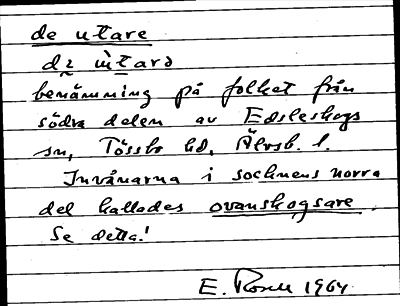 de utare
dɛ ùtarə
benämning på folket från
södra delen av Edsleskogs
sn, Tössbo hd, Älvsb. l.
Invånarna i socknens norra
del kallades ovanskogsare.
Se detta!
E. Rosell 1964